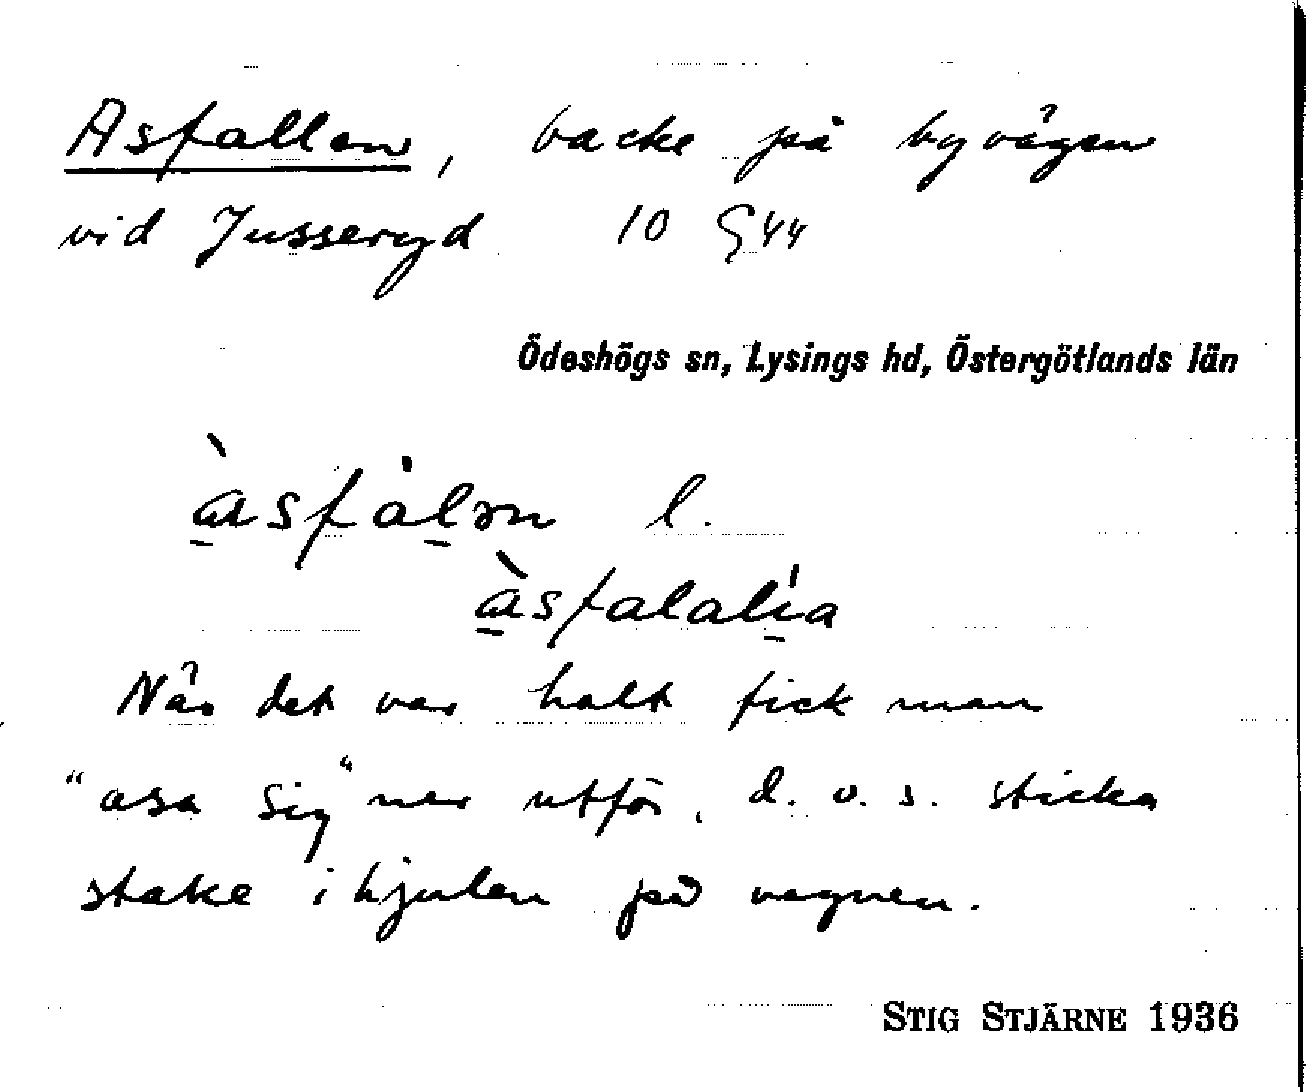 Asfallen, backe på byvägen
vid Jusseryd 10 G 44
Ödeshögs sn, Lysings hd, Östergötlands län
àsfàlən l.
àsfalalia
När det var halt fick man
"asa sig" ner utför, d. v. s. sticka
stake i hjulen på vagnen.
STIG STJÄRNE 1936